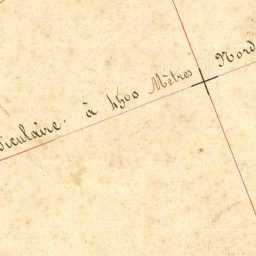 diculaire. à 4500 Mètres Nord